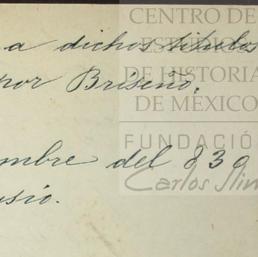 a dichos títulos
por Briseño.
mbre del 839
usio.
CENTRO DE
DE HISTORIA
DE MÉXICO
FUNDACIÓ
Carlos Slim